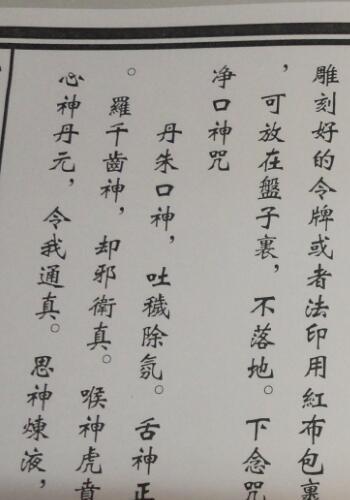 雕刻好的令牌或者法印用紅布包裹
，可放在盤子裏，不落地。下念咒
净口神咒
丹朱口神，吐穢除氛。舌神正
。羅千齒神，却邪衛真。喉神虎賁
心神丹元，令我通真。思神煉液，